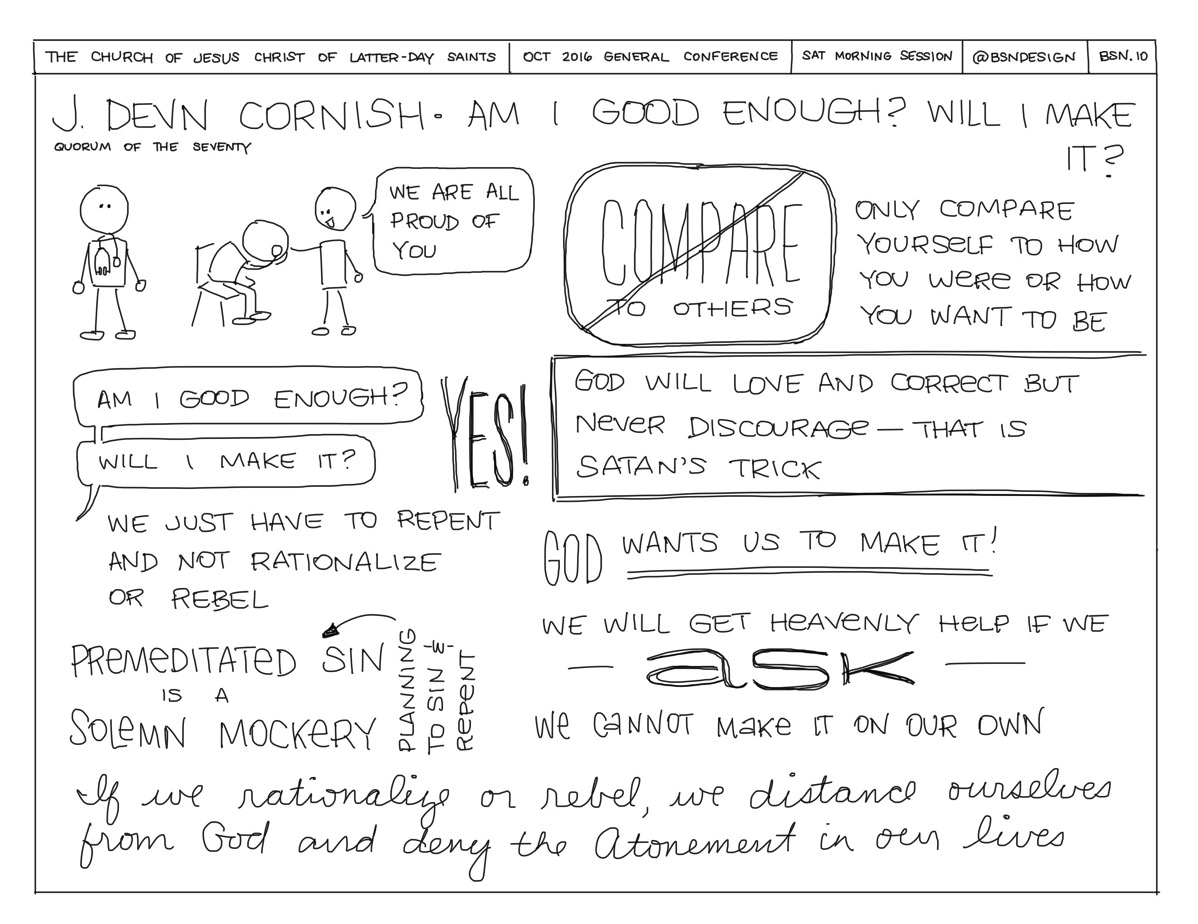 THE CHURCH OF JESUS CHRIST OF LATTER-DAY SAINTS
OCT 2016 GENERAL CONFERENCE
SAT MORNING SESSION
@BSNDESIGN
BSN.10
J. DEVN CORNISH • AM I GOOD ENOUGH? WILL I MAKE
IT?
QUORUM OF THE SEVENTY
WE ARE ALL
PROUD OF
YOU
COMPARE
TO OTHERS
ONLY COMPARE
YOURSELF TO HOW
YOU WERE OR HOW
YOU WANT TO BE
AM I GOOD ENOUGH?
WILL I MAKE IT?
YES!
GOD WILL LOVE AND CORRECT BUT
NEVER DISCOURAGE — THAT IS
SATAN'S TRICK
WE JUST HAVE TO REPENT
AND NOT RATIONALIZE
OR REBEL
GOD WANTS US TO MAKE IT!
WE WILL GET HEAVENLY HELP IF WE
— ASK —
WE CANNOT MAKE IT ON OUR OWN
PREMEDITATED SIN
IS A
SOLEMN MOCKERY
PLANNING
TO SIN -W-
REPENT
If we rationalize or rebel, we distance ourselves
from God and deny the Atonement in our lives